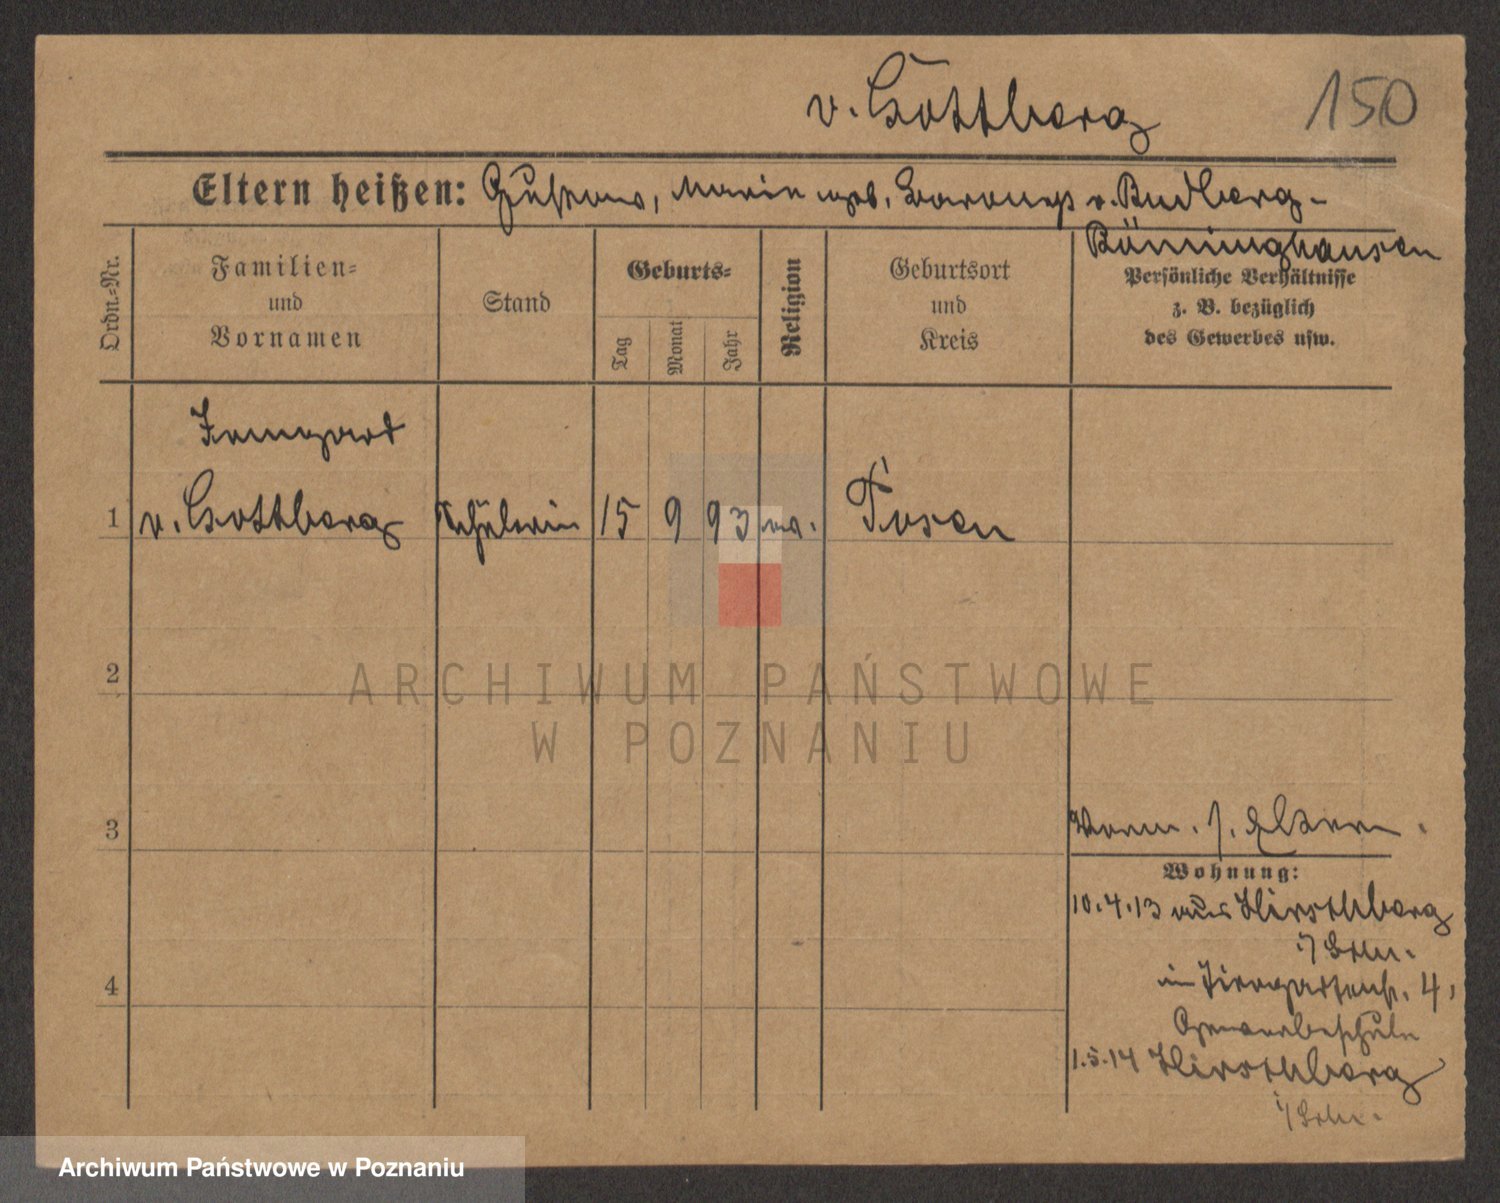 v. Gottberg
150
Eltern heißen: Gustav, Marie geb. Baroness v. Budberg-
Bönninghausen
Ordn.-Nr.
Familien-
und
Vornamen
Stand
Geburts-
Tag
Monat
Jahr
Religion
Geburtsort
und
Kreis
Persönliche Verhältnisse
z. B. bezüglich
des Gewerbes usw.
Irmgard
1 v. Gottberg Schülerin 15 9 93 ev. Posen
2
3
4
Verm. s. Eltern.
Wohnung:
10.4.13 aus Hirschberg
i/ Schl.
in Tiergartenstr. 4,
Gewerbeschule
1.5.14 Hirschberg
i/ Schl.
ARCHIWUM PAŃSTWOWE
W POZNANIU
Archiwum Państwowe w Poznaniu